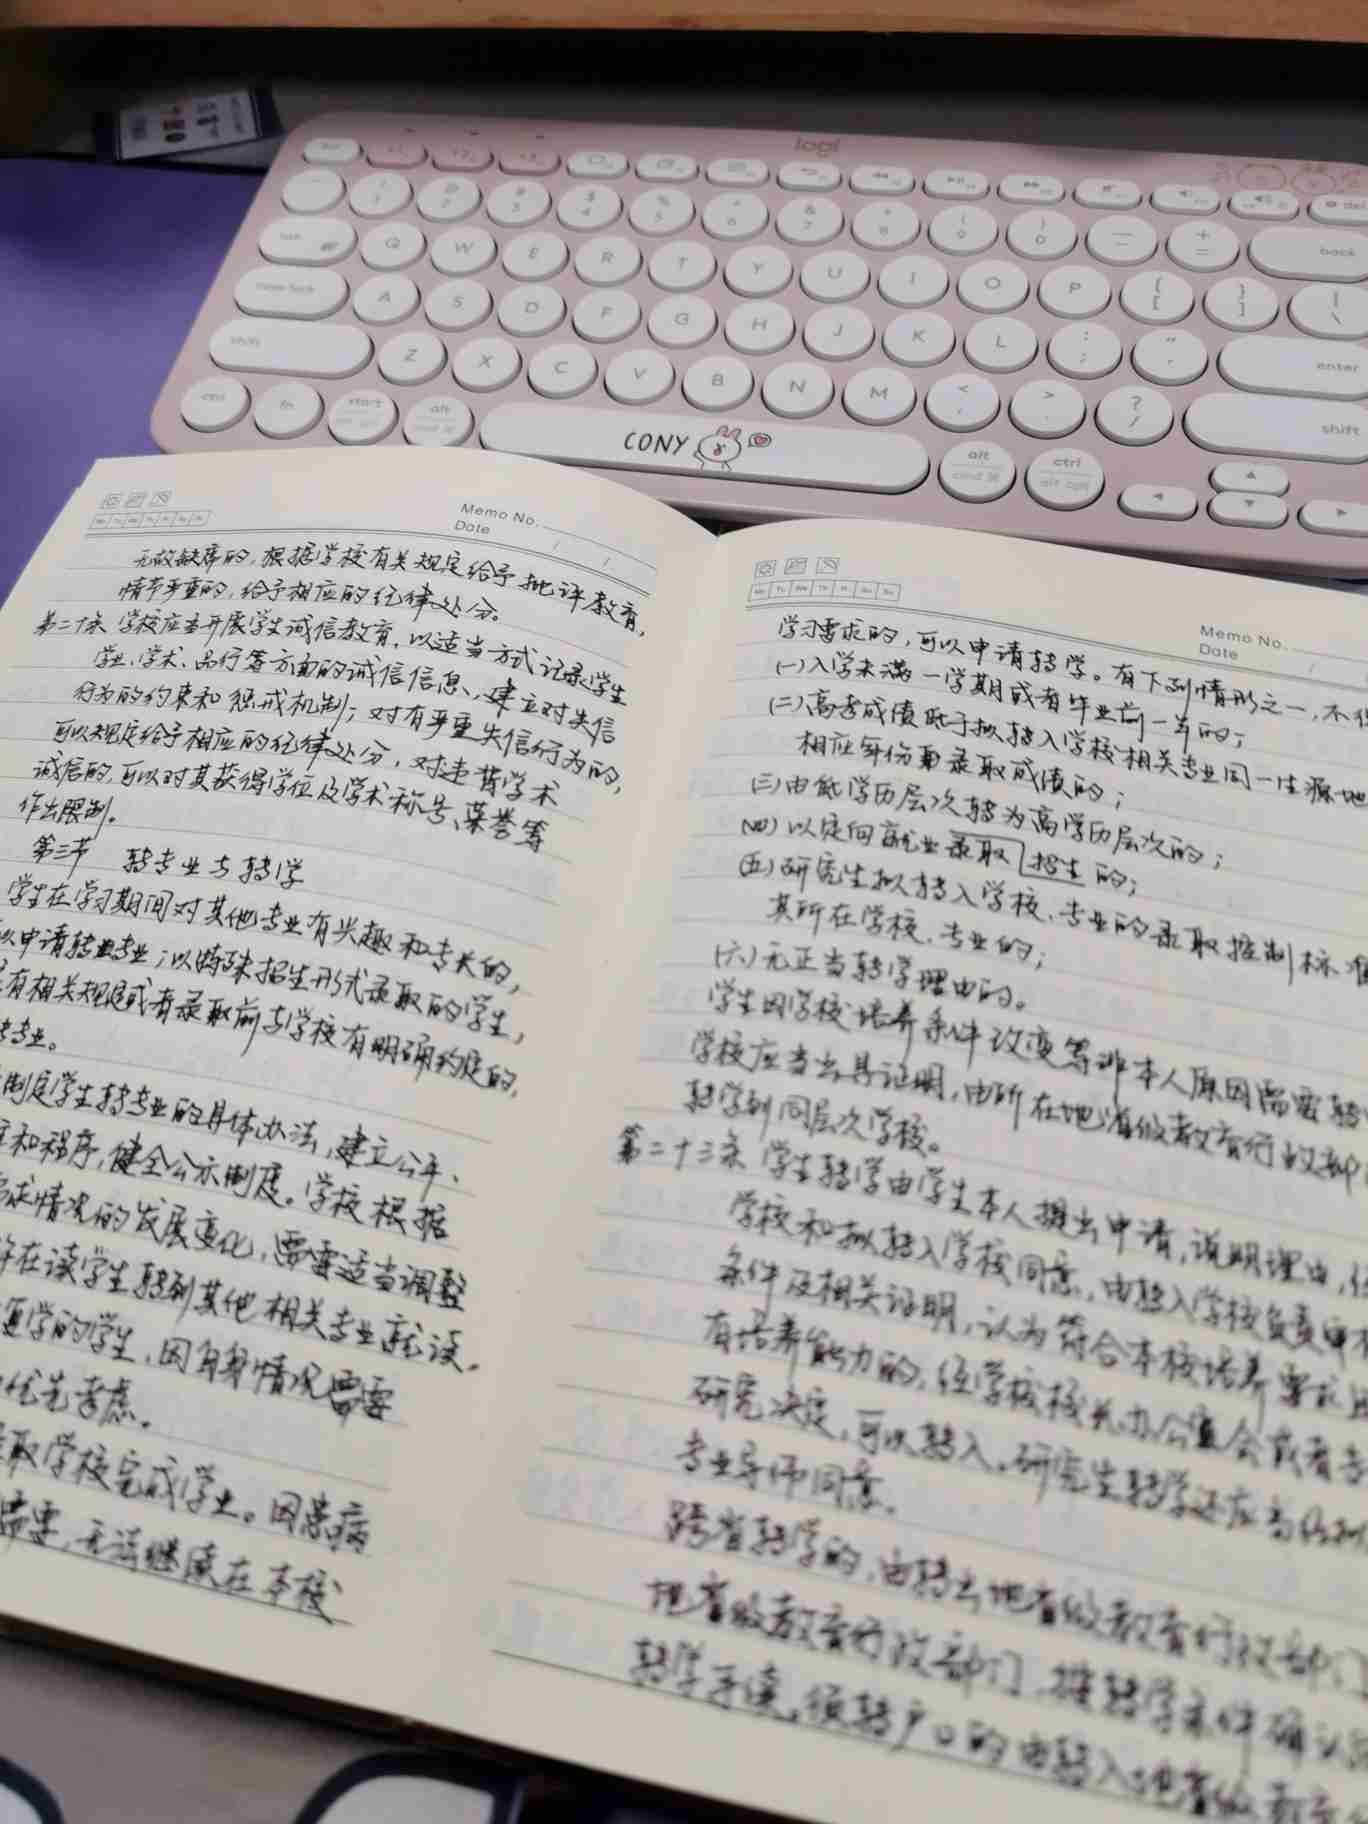 logi
Q W E R T Y U I O P
A S D F G H J K L
enter
shift
Z X C V B N M
shift
ctrl fn start alt
CONY
alt ctrl
Memo No.
Date
无故缺席的，根据学校有关规定给予批评教育，
情节严重的，给予相应的纪律处分。
第二十条 学校应当开展学生诚信教育，以适当方式记录学生
学业、学术、品行等方面的诚信信息，建立对失信
行为的约束和惩戒机制；对有严重失信行为的，
可以规定给予相应的纪律处分，对违背学术
诚信的，可以对其获得学位及学术称号、荣誉等
作出限制。
第三节 转专业与转学
学生在学习期间对其他专业有兴趣和专长的，
以申请转专业；以特殊招生形式录取的学生，
有相关规定或者录取前与学校有明确约定的，
转专业。
制定学生转专业的具体办法，建立公平、
和程序，健全公示制度。学校根据
求情况的发展变化，需要适当调整
许在读学生转到其他相关专业就读。
复学的学生，因自身情况需要
优先考虑。
取学校完成学业。因患病
需要，无法继续在本校
Memo No.
Date
学习要求的，可以申请转学。有下列情形之一，不得
(一)入学未满一学期或者毕业前一年的；
(二)高考成绩低于拟转入学校相关专业同一生源地
相应年份录取成绩的；
(三)由低学历层次转为高学历层次的；
(四)以定向就业录取招生的；
(五)研究生拟转入学校、专业的录取控制标准
其所在学校、专业的；
(六)无正当转学理由的。
学生因学校培养条件改变等非本人原因需要转
学校应当出具证明，由所在地省级教育行政部门
转学到同层次学校。
第二十三条 学生转学由学生本人提出申请，说明理由，经
学校和拟转入学校同意，由转入学校负责审核
条件及相关证明，认为符合本校培养要求且
有培养能力的，经学校校长办公会或者专
研究决定，可以转入。研究生转学还应当
专业导师同意。
跨省转学的，由转出地省级教育行政部门
地省级教育行政部门，按转学条件确认后
转学手续。须转户口的由转入地省级教育